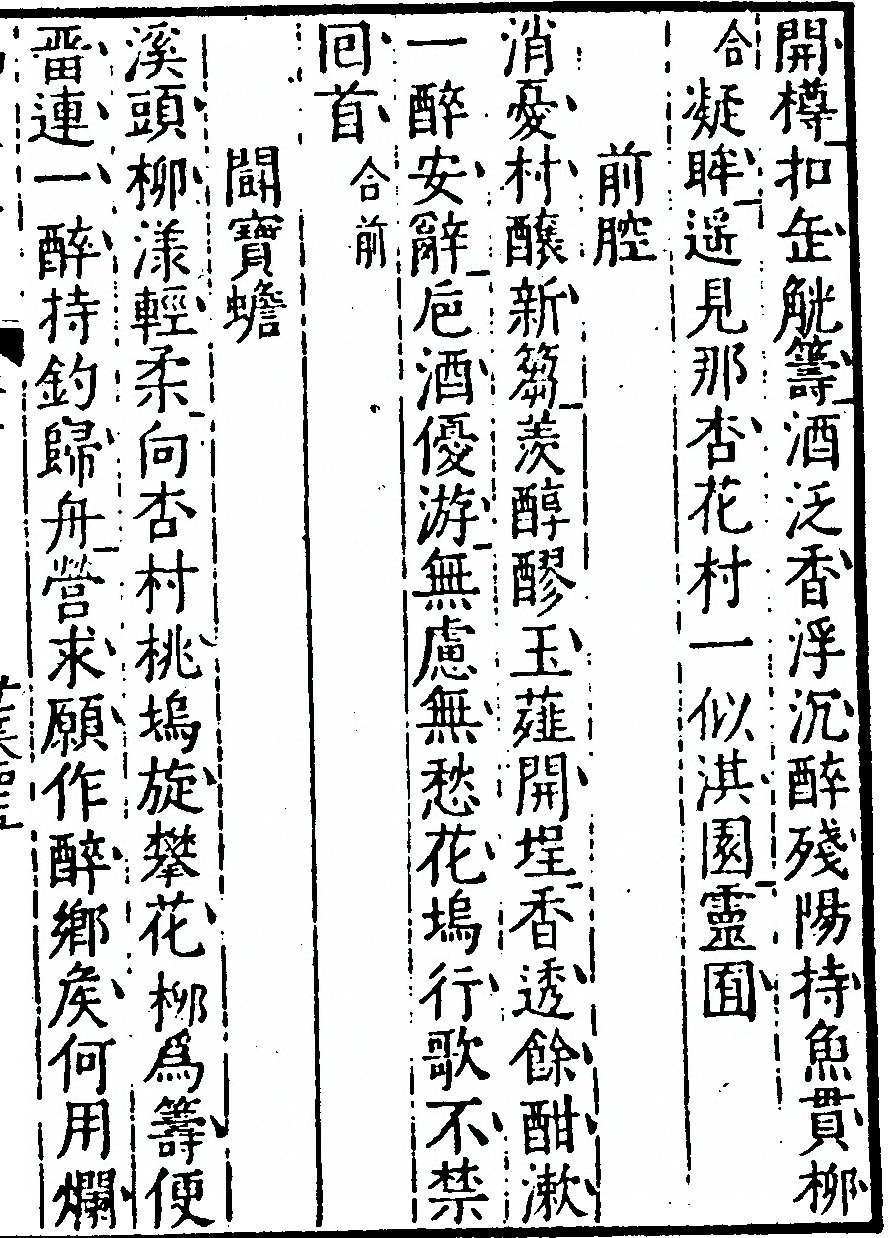 開樽扣缶觥籌酒泛香浮沉醉殘陽持魚貫柳
合凝眸遥見那杏花村一似淇園靈囿
前腔
消憂村醸新篘羡醇醪玉薤開埕香透餘酣漱
一醉安辭巵酒優游無慮無愁花塢行歌不禁
囘首合前
鬪寶蟾
溪頭柳漾輕柔向杏村桃塢旋攀花柳爲籌便
畨連一醉持釣歸舟營求願作醉鄉矦何用爛